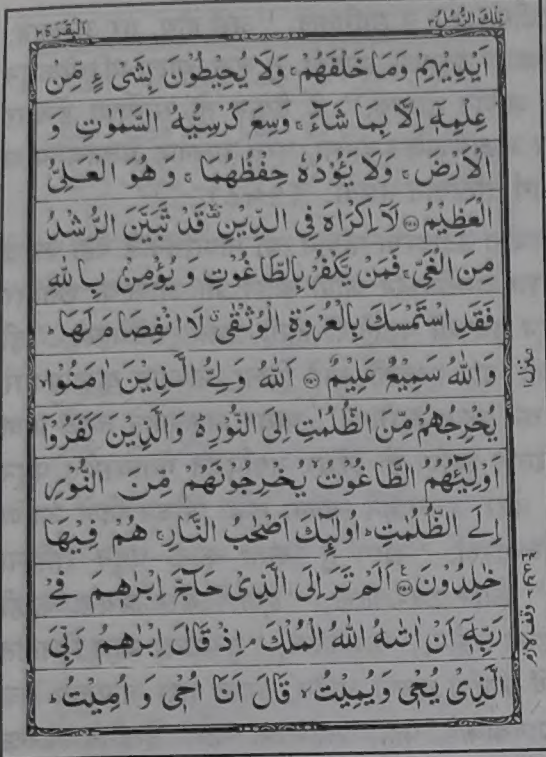 تِلْكَ الرُّسُلُ ٣
اَلْبَقَرَة ٢
اَيْدِيْهِمْ وَمَا خَلْفَهُمْ ۚ وَلَا يُحِيْطُوْنَ بِشَیْءٍ مِّنْ
عِلْمِهٖۤ اِلَّا بِمَا شَآءَ ۚ وَسِعَ كُرْسِيُّهُ السَّمٰوٰتِ وَ
الْاَرْضَ ۚ وَلَا يَـُٔوْدُهٗ حِفْظُهُمَا ۚ وَ هُوَ الْعَلِیُّ
الْعَظِيْمُ ۝۲۵۵ لَاۤ اِكْرَاهَ فِی الدِّيْنِ ۙ قَدْ تَّبَيَّنَ الرُّشْدُ
مِنَ الْغَیِّ ۚ فَمَنْ يَّكْفُرْ بِالطَّاغُوْتِ وَ يُؤْمِنْۢ بِاللّٰهِ
فَقَدِ اسْتَمْسَكَ بِالْعُرْوَةِ الْوُثْقٰی ۗ لَا انْفِصَامَ لَهَا ؕ
وَاللّٰهُ سَمِيْعٌ عَلِيْمٌ ۝۲۵۶ اَللّٰهُ وَلِیُّ الَّذِيْنَ اٰمَنُوْا ۙ
يُخْرِجُهُمْ مِّنَ الظُّلُمٰتِ اِلَی النُّوْرِ ؕ۬ وَالَّذِيْنَ كَفَرُوْۤا
اَوْلِيٰٓـُٔهُمُ الطَّاغُوْتُ ۙ يُخْرِجُوْنَهُمْ مِّنَ النُّوْرِ
اِلَی الظُّلُمٰتِ ؕ اُولٰٓئِكَ اَصْحٰبُ النَّارِ ۚ هُمْ فِيْهَا
خٰلِدُوْنَ ۝۲۵۷ اَلَمْ تَرَ اِلَی الَّذِیْ حَآجَّ اِبْرٰهٖمَ فِیْ
رَبِّهٖۤ اَنْ اٰتٰىهُ اللّٰهُ الْمُلْكَ ۘ اِذْ قَالَ اِبْرٰهٖمُ رَبِّیَ
الَّذِیْ يُحْیٖ وَيُمِيْتُ ۙ قَالَ اَنَا اُحْیٖ وَ اُمِيْتُ ؕ
منزل ١
وقف لازم